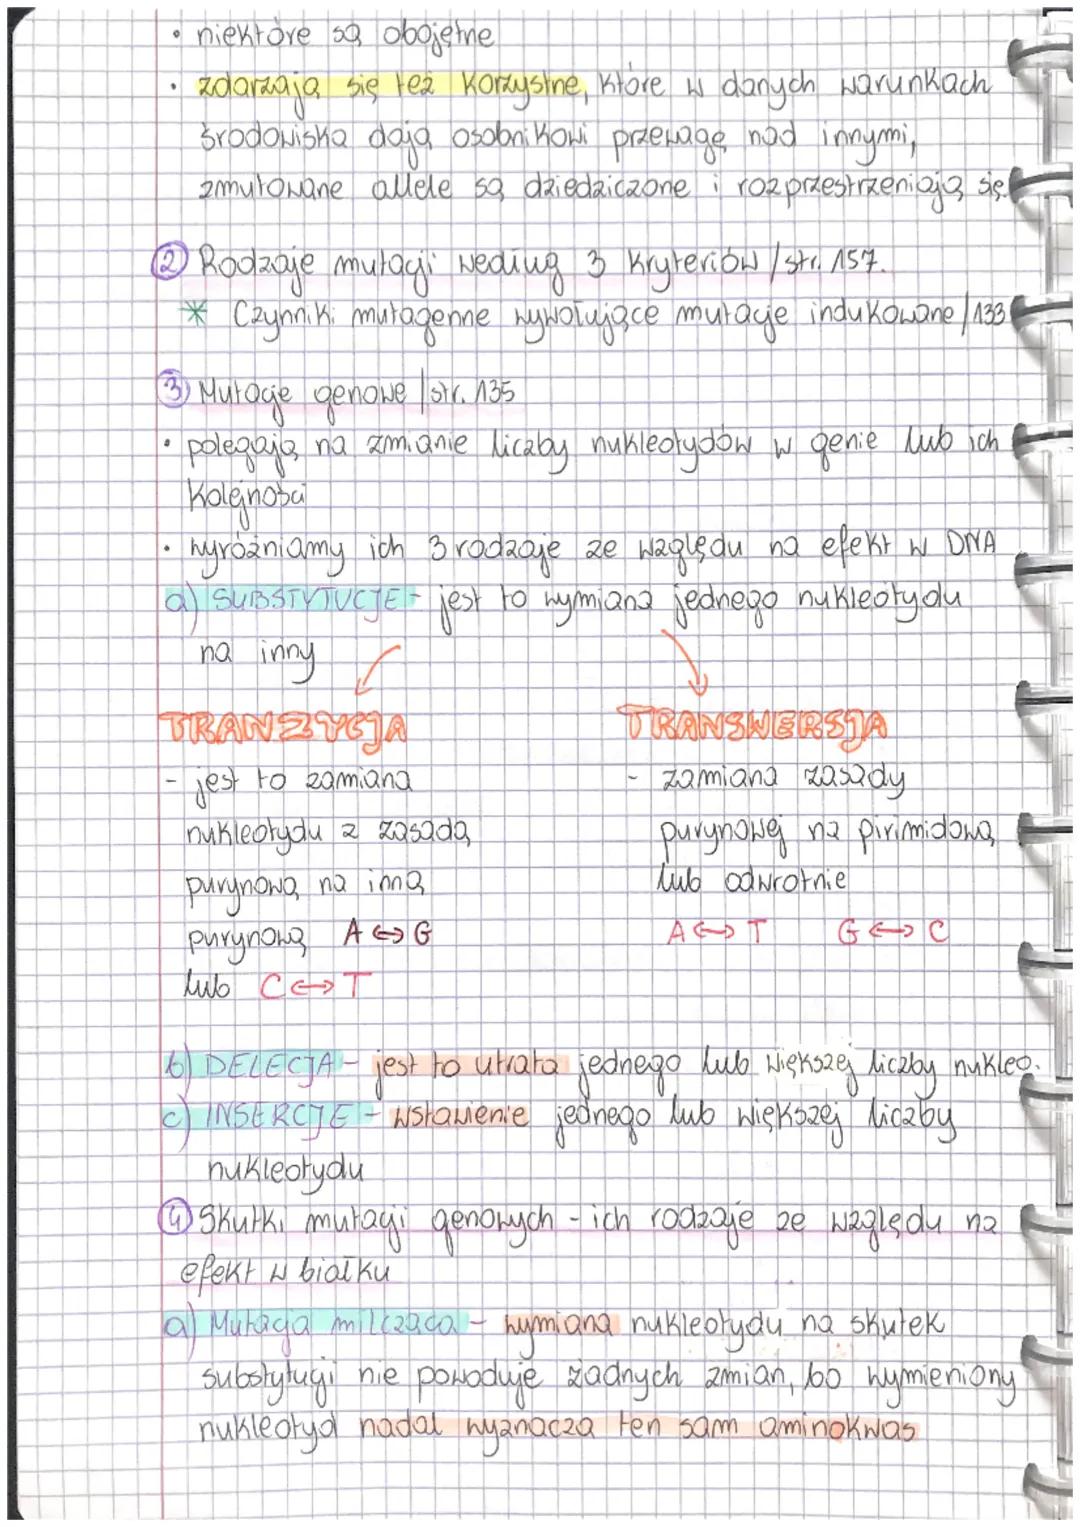 • niektóre są obojętne
• zdarzają się też korzystne, które w danych warunkach
środowiska dają osobnikowi przewagę nad innymi,
zmutowane allele są dziedziczone i rozprzestrzeniają się.
② Rodzaje mutacji według 3 kryteriów / str. 157.
* Czynniki mutagenne wywołujące mutacje indukowane / 133
③ Mutacje genowe / str. 135
• polegają na zmianie liczby nukleotydów w genie lub ich
kolejności
• wyróżniamy ich 3 rodzaje ze względu na efekt w DNA
a) SUBSTYTUCJE - jest to wymiana jednego nukleotydu
na inny
TRANZYCJA
- jest to zamiana
nukleotydu z zasadą
purynową na inną
purynową A ↔ G
lub C ↔ T
TRANSWERSJA
- zamiana zasady
purynowej na pirimidową
lub odwrotnie
A ↔ T G ↔ C
b) DELECJA - jest to utrata jednego lub większej liczby nukleo.
c) INSERCJE - wstawienie jednego lub większej liczby
nukleotydu
④ Skutki mutacji genowych - ich rodzaje ze względu na
efekt w białku
a) Mutacja milcząca - wymiana nukleotydu na skutek
substytucji nie powoduje żadnych zmian, bo wymieniony
nukleotyd nadal wyznacza ten sam aminokwas